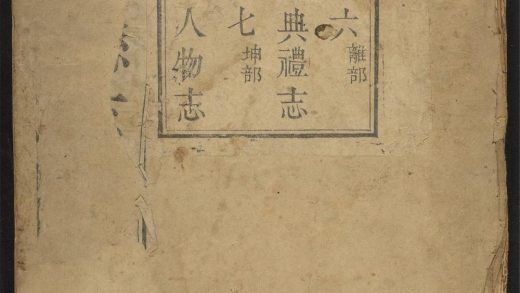 六 離部
典禮志
七 坤部
人物志